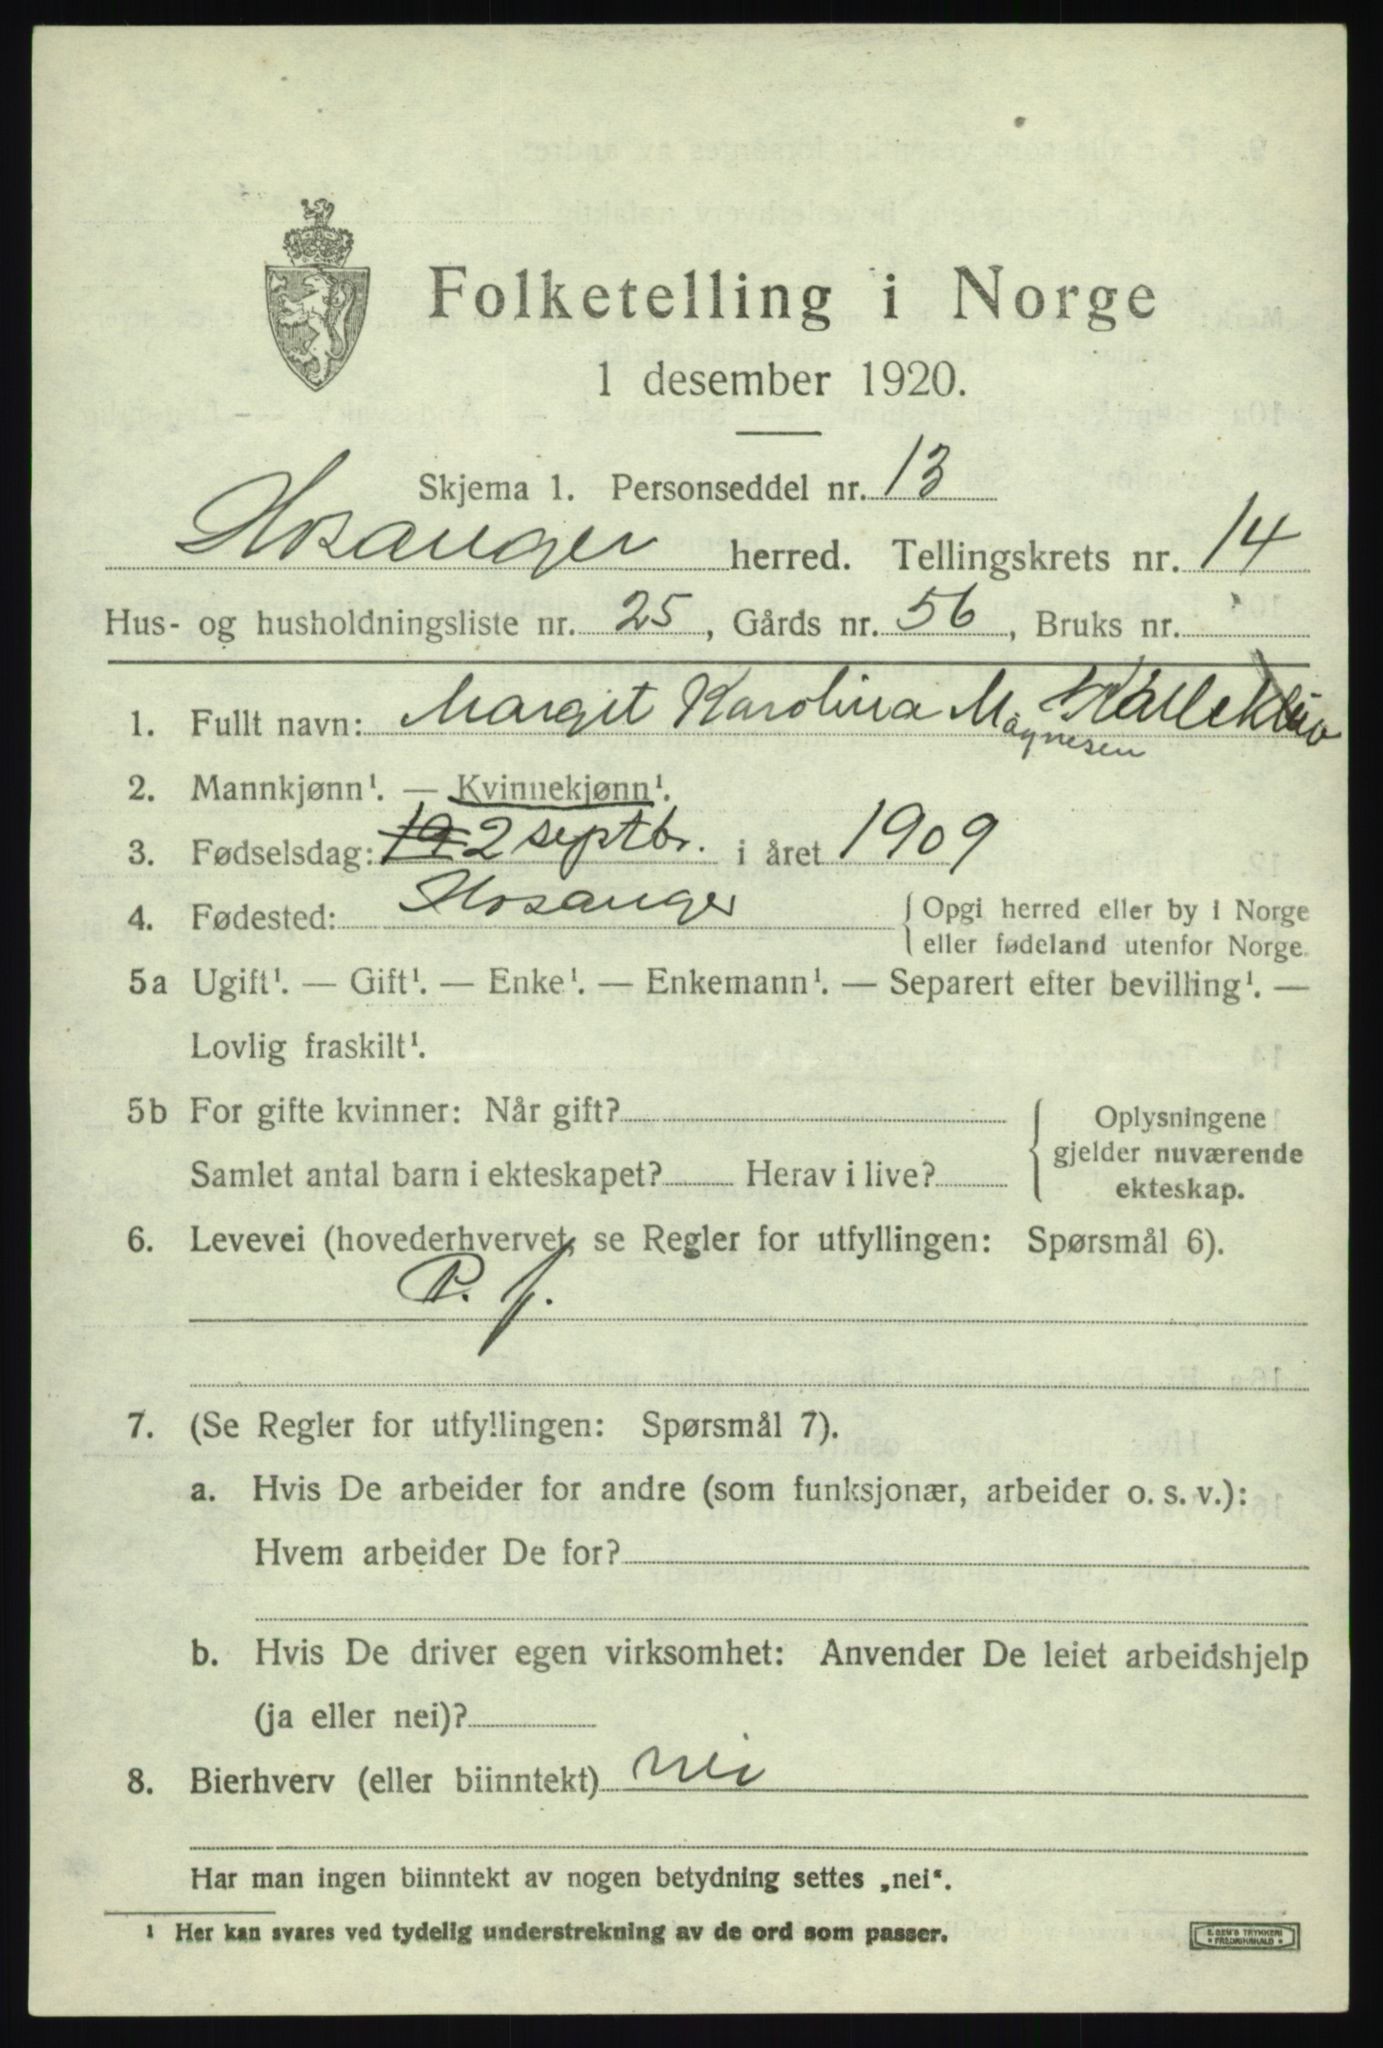 Folketelling i Norge
1 desember 1920.
Skjema 1. Personseddel nr. 13
Hosanger herred. Tellingskrets nr. 14
Hus- og husholdningsliste nr. 25, Gårds nr. 56, Bruks nr.
1. Fullt navn: Margit Karolina M
Magnesen
2. Mannkjønn¹. — Kvinnekjønn¹.
3. Fødselsdag: 2 septbr. i året 1909
4. Fødested: Hosanger { Opgi herred eller by i Norge
eller fødeland utenfor Norge.
5a Ugift¹. — Gift¹. — Enke¹. — Enkemann¹. — Separert efter bevilling¹. —
Lovlig fraskilt¹.
5b For gifte kvinner: Når gift? { Oplysningene
gjelder nuværende
Samlet antal barn i ekteskapet? Herav i live? ekteskap.
6. Levevei (hovederhvervet, se Regler for utfyllingen: Spørsmål 6).
P. f.
7. (Se Regler for utfyllingen: Spørsmål 7).
a. Hvis De arbeider for andre (som funksjonær, arbeider o. s. v.):
Hvem arbeider De for?
b. Hvis De driver egen virksomhet: Anvender De leiet arbeidshjelp
(ja eller nei)?
8. Bierhverv (eller biinntekt) nei
Har man ingen biinntekt av nogen betydning settes „nei“.
¹ Her kan svares ved tydelig understrekning av de ord som passer.